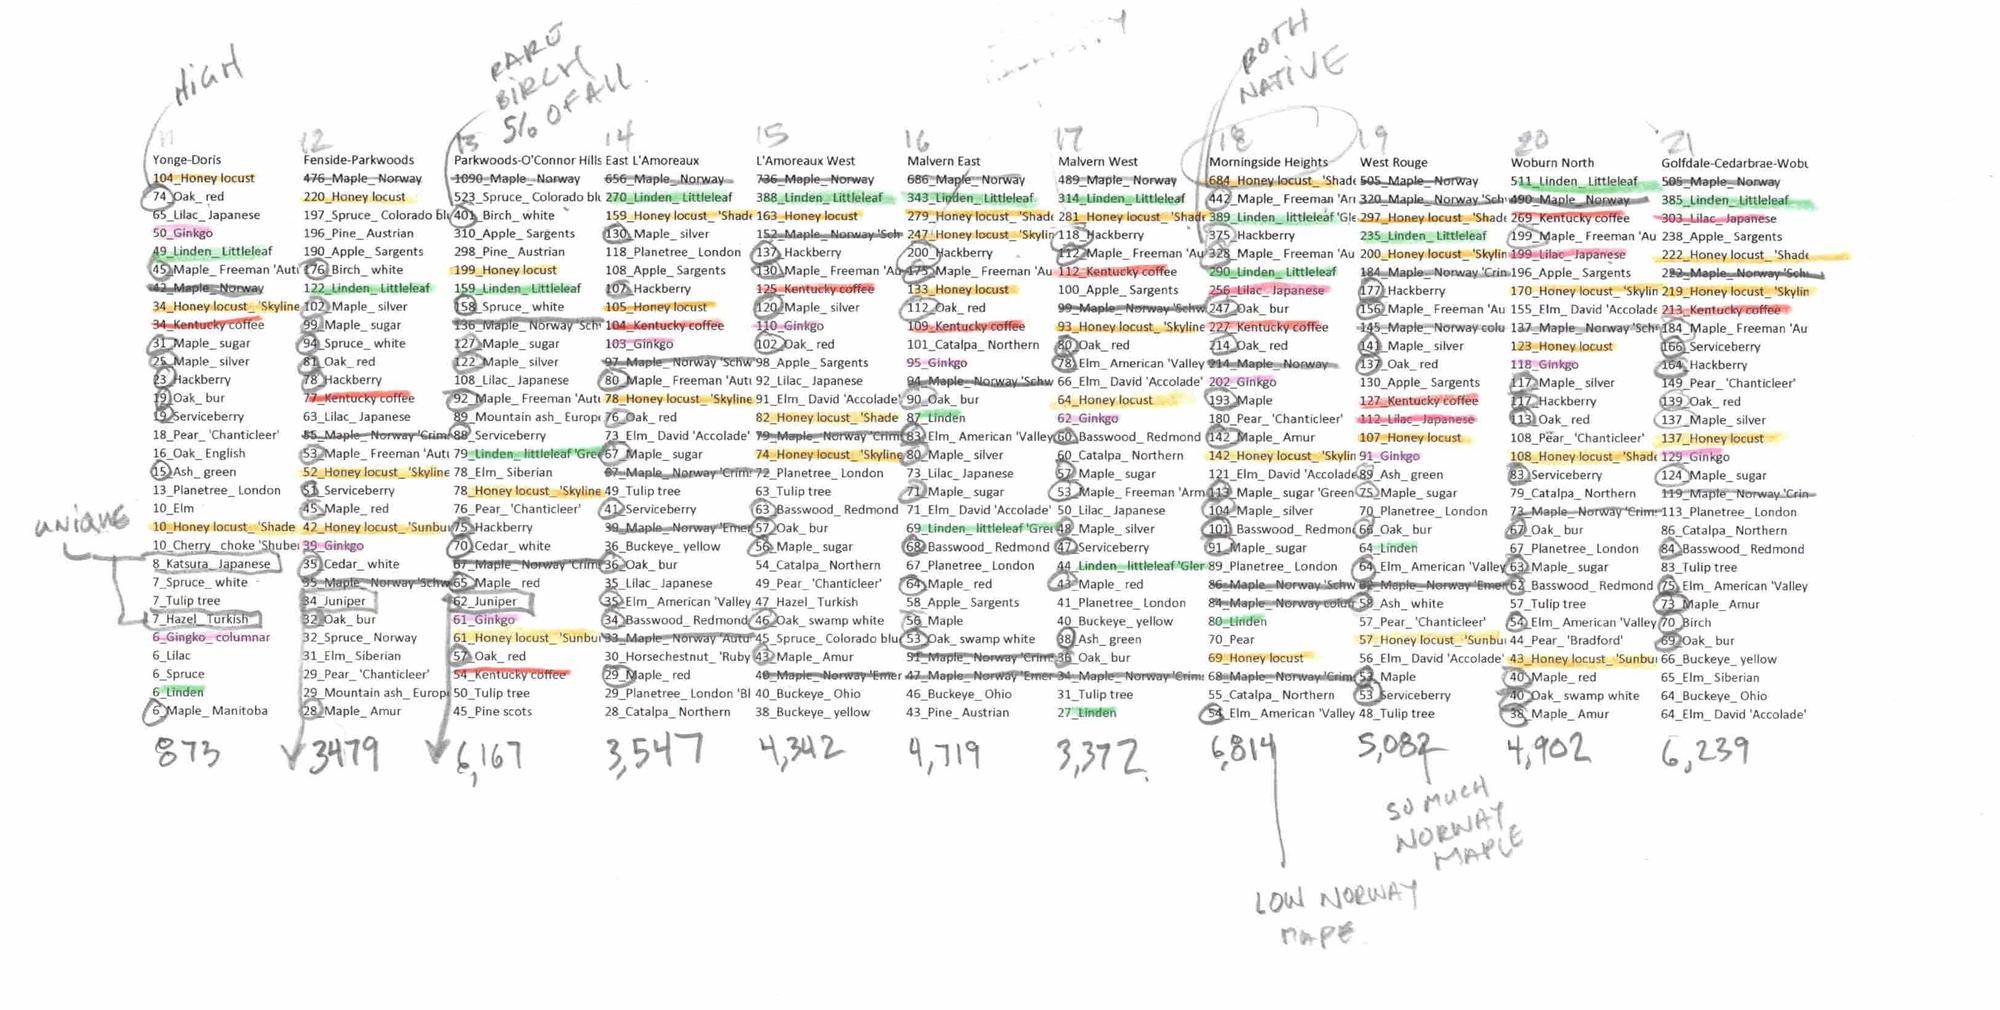 HIGH
RARE
BIRCH
5% OF ALL
BOTH
NATIVE
11
Yonge-Doris
104_Honey locust
74_Oak_ red
65_Lilac_ Japanese
50_Ginkgo
49_Linden_ Littleleaf
45_Maple_ Freeman 'Aut
42_Maple_ Norway
34_Honey locust_ 'Skyline
34_Kentucky coffee
31_Maple_ sugar
25_Maple_ silver
23_Hackberry
19_Oak_ bur
19_Serviceberry
18_Pear_ 'Chanticleer'
16_Oak_ English
15_Ash_ green
13_Planetree_ London
10_Elm
10_Honey locust_ 'Shade
10_Cherry_ choke 'Shube
8_Katsura_ Japanese
7_Spruce_ white
7_Tulip tree
7_Hazel_ Turkish
6_Gingko_ columnar
6_Lilac
6_Spruce
6_Linden
6_Maple_ Manitoba
873
UNIQUE
12
Fenside-Parkwoods
476_Maple_ Norway
220_Honey locust
197_Spruce_ Colorado blu
196_Pine_ Austrian
190_Apple_ Sargents
176_Birch_ white
122_Linden_ Littleleaf
102_Maple_ silver
99_Maple_ sugar
94_Spruce_ white
81_Oak_ red
78_Hackberry
77_Kentucky coffee
63_Lilac_ Japanese
55_Maple_ Norway 'Crim
53_Maple_ Freeman 'Aut
52_Honey locust_ 'Skyline
51_Serviceberry
45_Maple_ red
42_Honey locust_ 'Sunbu
39_Ginkgo
35_Cedar_ white
35_Maple_ Norway 'Schw
34_Juniper
32_Oak_ bur
32_Spruce_ Norway
31_Elm_ Siberian
29_Pear_ 'Chanticleer'
29_Mountain ash_ Europ
28_Maple_ Amur
3479
13
Parkwoods-O'Connor Hills
1090_Maple_ Norway
523_Spruce_ Colorado blu
401_Birch_ white
310_Apple_ Sargents
298_Pine_ Austrian
199_Honey locust
159_Linden_ Littleleaf
158_Spruce_ white
136_Maple_ Norway 'Sch
127_Maple_ sugar
122_Maple_ silver
108_Lilac_ Japanese
92_Maple_ Freeman 'Aut
89_Mountain ash_ Europe
88_Serviceberry
79_Linden_ littleleaf 'Gre
78_Elm_ Siberian
78_Honey locust_ 'Skyline
76_Pear_ 'Chanticleer'
75_Hackberry
70_Cedar_ white
67_Maple_ Norway 'Crim
65_Maple_ red
62_Juniper
61_Ginkgo
61_Honey locust_ 'Sunbu
57_Oak_ red
54_Kentucky coffee
50_Tulip tree
45_Pine scots
6,167
14
East L'Amoreaux
656_Maple_ Norway
270_Linden_ Littleleaf
159_Honey locust_ 'Shade
130_Maple_ silver
118_Planetree_ London
108_Apple_ Sargents
107_Hackberry
105_Honey locust
104_Kentucky coffee
103_Ginkgo
97_Maple_ Norway 'Schw
80_Maple_ Freeman 'Aut
78_Honey locust_ 'Skyline
76_Oak_ red
73_Elm_ David 'Accolade'
67_Maple_ sugar
67_Maple_ Norway 'Crim
49_Tulip tree
41_Serviceberry
39_Maple_ Norway 'Emer
36_Buckeye_ yellow
36_Oak_ bur
35_Lilac_ Japanese
35_Elm_ American 'Valley
34_Basswood_ Redmond
33_Maple_ Norway 'Autu
30_Horsechestnut_ 'Ruby
29_Maple_ red
29_Planetree_ London 'Bl
28_Catalpa_ Northern
3,547
15
L'Amoreaux West
736_Maple_ Norway
388_Linden_ Littleleaf
163_Honey locust
152_Maple_ Norway 'Sch
137_Hackberry
130_Maple_ Freeman 'Au
125_Kentucky coffee
120_Maple_ silver
110_Ginkgo
102_Oak_ red
98_Apple_ Sargents
92_Lilac_ Japanese
91_Elm_ David 'Accolade'
82_Honey locust_ 'Shade
79_Maple_ Norway 'Crim
74_Honey locust_ 'Skyline
72_Planetree_ London
63_Tulip tree
63_Basswood_ Redmond
57_Oak_ bur
56_Maple_ sugar
54_Catalpa_ Northern
49_Pear_ 'Chanticleer'
47_Hazel_ Turkish
46_Oak_ swamp white
45_Spruce_ Colorado blu
43_Maple_ Amur
40_Maple_ Norway 'Emer
40_Buckeye_ Ohio
38_Buckeye_ yellow
4,342
16
Malvern East
686_Maple_ Norway
343_Linden_ Littleleaf
279_Honey locust_ 'Shade
247_Honey locust_ 'Skylin
200_Hackberry
175_Maple_ Freeman 'Au
133_Honey locust
112_Oak_ red
109_Kentucky coffee
101_Catalpa_ Northern
95_Ginkgo
94_Maple_ Norway 'Schw
90_Oak_ bur
87_Linden
83_Elm_ American 'Valley
80_Maple_ silver
73_Lilac_ Japanese
71_Maple_ sugar
71_Elm_ David 'Accolade'
69_Linden_ littleleaf 'Gre
68_Basswood_ Redmond
67_Planetree_ London
64_Maple_ red
58_Apple_ Sargents
56_Maple
53_Oak_ swamp white
51_Maple_ Norway 'Crim
47_Maple_ Norway 'Emer
46_Buckeye_ Ohio
43_Pine_ Austrian
4,719
17
Malvern West
489_Maple_ Norway
314_Linden_ Littleleaf
281_Honey locust_ 'Shade
118_Hackberry
112_Maple_ Freeman 'Au
112_Kentucky coffee
100_Apple_ Sargents
99_Maple_ Norway 'Schw
93_Honey locust_ 'Skyline
80_Oak_ red
78_Elm_ American 'Valley
66_Elm_ David 'Accolade'
64_Honey locust
62_Ginkgo
60_Basswood_ Redmond
60_Catalpa_ Northern
57_Maple_ sugar
53_Maple_ Freeman 'Arm
50_Lilac_ Japanese
48_Maple_ silver
47_Serviceberry
44_Linden_ littleleaf 'Gler
43_Maple_ red
41_Planetree_ London
40_Buckeye_ yellow
38_Ash_ green
36_Oak_ bur
34_Maple_ Norway 'Crim
31_Tulip tree
27_Linden
3,372
18
Morningside Heights
684_Honey locust_ 'Shade
442_Maple_ Freeman 'Ar
389_Linden_ littleleaf 'Gle
375_Hackberry
328_Maple_ Freeman 'Au
290_Linden_ Littleleaf
256_Lilac_ Japanese
247_Oak_ bur
227_Kentucky coffee
214_Oak_ red
214_Maple_ Norway
202_Ginkgo
193_Maple
180_Pear_ 'Chanticleer'
142_Maple_ Amur
142_Honey locust_ 'Skylin
121_Elm_ David 'Accolade
113_Maple_ sugar 'Green
104_Maple_ silver
101_Basswood_ Redmon
91_Maple_ sugar
89_Planetree_ London
86_Maple_ Norway 'Schw
84_Maple_ Norway colun
80_Linden
70_Pear
69_Honey locust
68_Maple_ Norway 'Crim
55_Catalpa_ Northern
54_Elm_ American 'Valley
6,814
LOW NORWAY
MAPE
19
West Rouge
505_Maple_ Norway
320_Maple_ Norway 'Sch
297_Honey locust_ 'Shade
235_Linden_ Littleleaf
200_Honey locust_ 'Skylin
184_Maple_ Norway 'Crin
177_Hackberry
156_Maple_ Freeman 'Au
145_Maple_ Norway colu
141_Maple_ silver
137_Oak_ red
130_Apple_ Sargents
127_Kentucky coffee
112_Lilac_ Japanese
107_Honey locust
91_Ginkgo
89_Ash_ green
75_Maple_ sugar
70_Planetree_ London
66_Oak_ bur
64_Linden
64_Elm_ American 'Valley
62_Maple_ Norway 'Emer
58_Ash_ white
57_Pear_ 'Chanticleer'
57_Honey locust_ 'Sunbu
56_Elm_ David 'Accolade'
53_Maple
53_Serviceberry
48_Tulip tree
5,082
SO MUCH
NORWAY
MAPLE
20
Woburn North
511_Linden_ Littleleaf
490_Maple_ Norway
269_Kentucky coffee
199_Maple_ Freeman 'Au
199_Lilac_ Japanese
196_Apple_ Sargents
170_Honey locust_ 'Skylin
155_Elm_ David 'Accolade
137_Maple_ Norway 'Sch
123_Honey locust
118_Ginkgo
117_Maple_ silver
117_Hackberry
113_Oak_ red
108_Pear_ 'Chanticleer'
108_Honey locust_ 'Shade
83_Serviceberry
79_Catalpa_ Northern
73_Maple_ Norway 'Crim
67_Oak_ bur
67_Planetree_ London
63_Maple_ sugar
62_Basswood_ Redmond
57_Tulip tree
54_Elm_ American 'Valley
44_Pear_ 'Bradford'
43_Honey locust_ 'Sunbu
40_Maple_ red
40_Oak_ swamp white
38_Maple_ Amur
4,902
21
Golfdale-Cedarbrae-Wobu
505_Maple_ Norway
385_Linden_ Littleleaf
303_Lilac_ Japanese
238_Apple_ Sargents
222_Honey locust_ 'Shade
222_Maple_ Norway 'Sch
219_Honey locust_ 'Skylin
213_Kentucky coffee
184_Maple_ Freeman 'Au
166_Serviceberry
164_Hackberry
149_Pear_ 'Chanticleer'
139_Oak_ red
137_Maple_ silver
137_Honey locust
129_Ginkgo
124_Maple_ sugar
119_Maple_ Norway 'Crin
113_Planetree_ London
86_Catalpa_ Northern
84_Basswood_ Redmond
83_Tulip tree
75_Elm_ American 'Valley
73_Maple_ Amur
70_Birch
69_Oak_ bur
66_Buckeye_ yellow
65_Elm_ Siberian
64_Buckeye_ Ohio
64_Elm_ David 'Accolade'
6,239